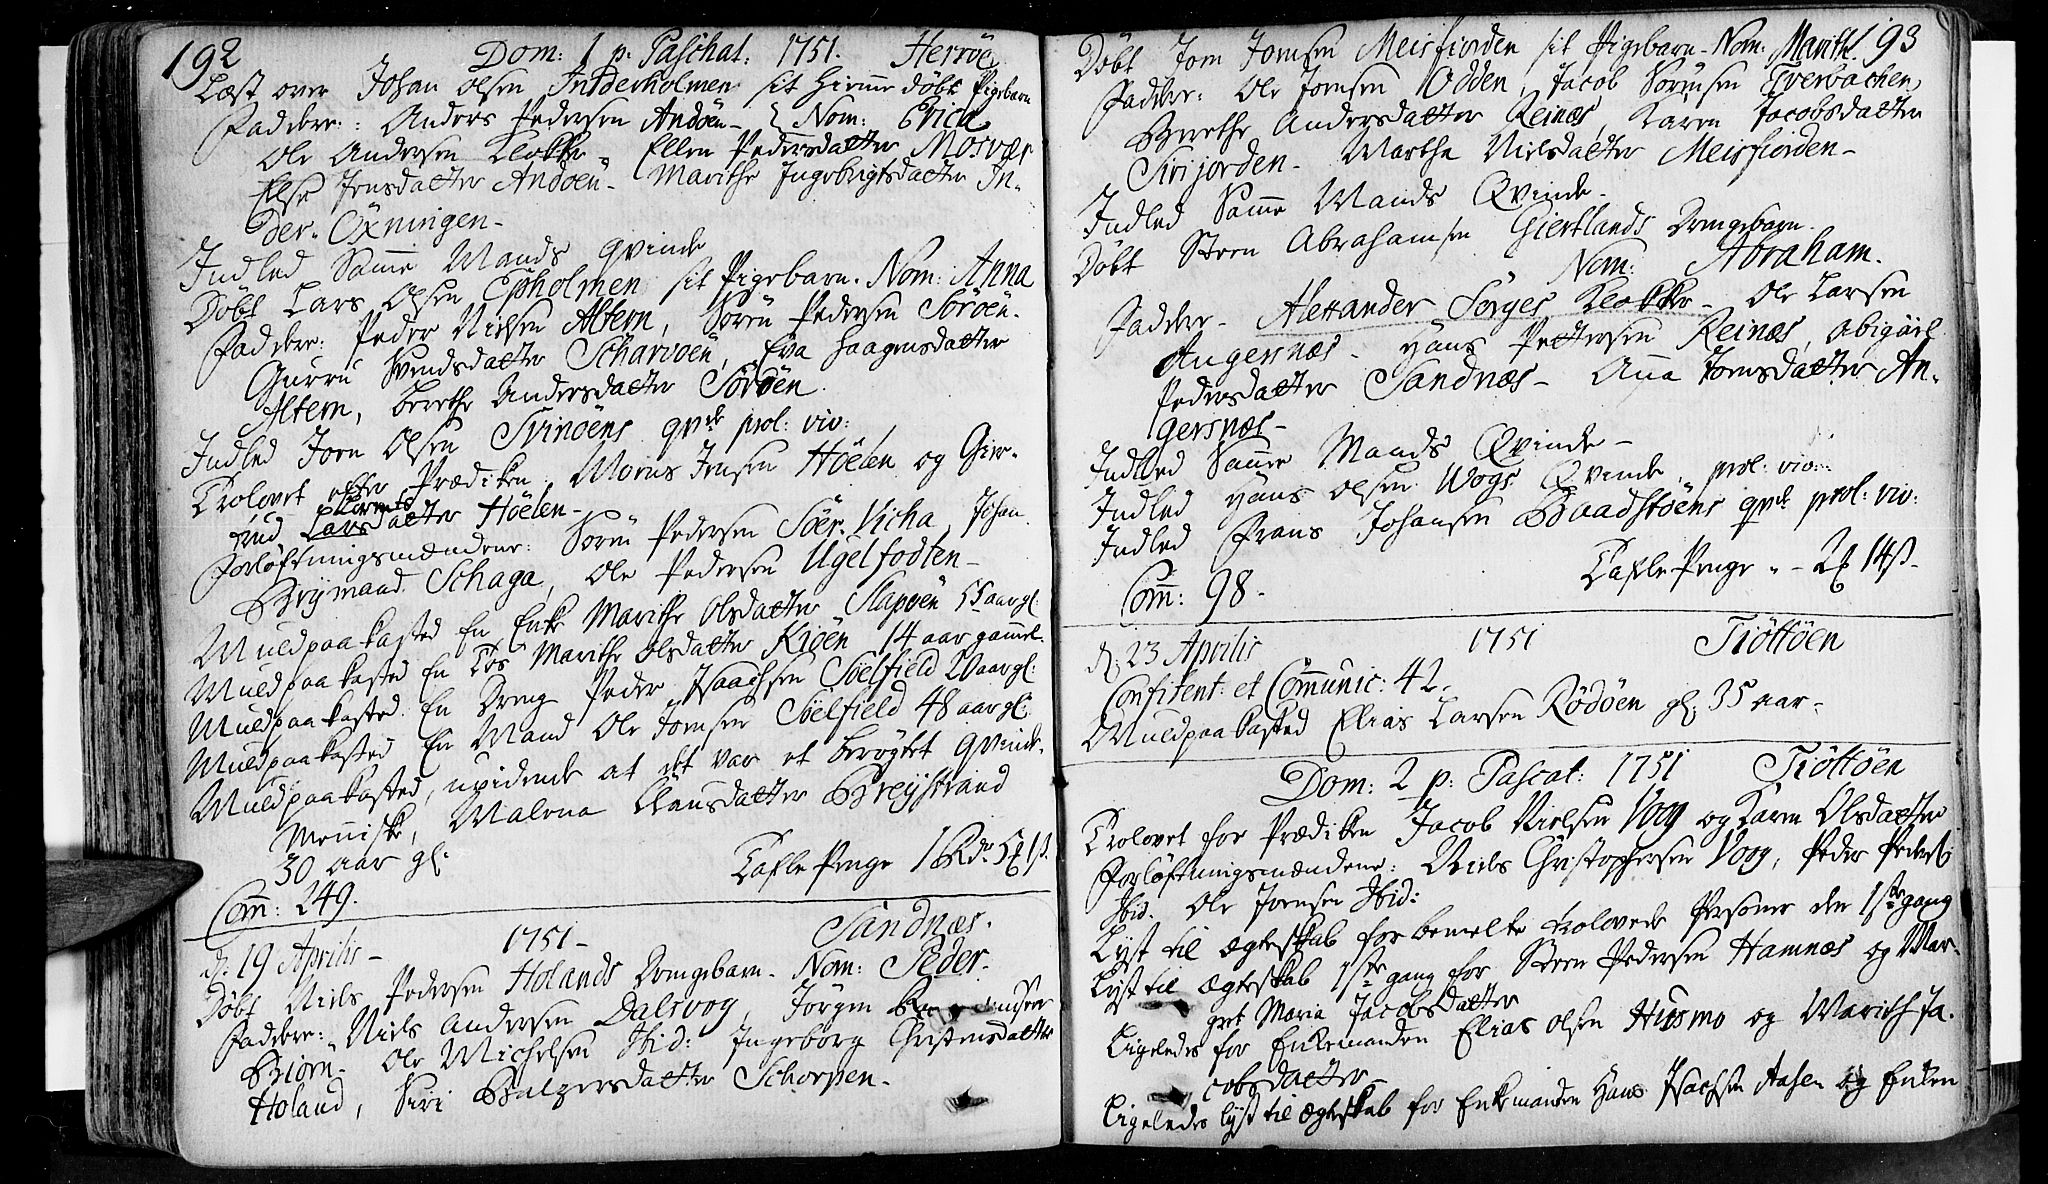 192
Dom: 1 p: Paschat: 1751. Herröe
Læst over Johan Olsen Inderholmen sit hiemme døbt Pigebarn
Faddere: Anders Pedersen Andöen - Nom: Erica
Ole Andersen Klokker, Ellen Pedersdatter Mosvær
Else Jensdatter Andöen - Marithe Ingebrigtsdatter In-
der-Öxningen -
Indled Samme Mands qvinde
Døbt Lars Olsen Epholmen sit Pigebarn. Nom: Anna
Faddere: Peder Nielsen Altern, Sören Pedersen Söröen.
Gurru Svendsdatter Scharvoen, Eva Haagensdatter
Altern, Berethe Andersdatter Söröen.
Indled Joen Olsen Svinöens qvde prol: viv:
Trolovet efter Prædiken Morns Jensen Höelen og Gier-
trud Larsdatter Höelen -
Forløftningsmændene: Sören Pedersen Söer-Vicha, Johan
Brijmand Schaga, Ole Pedersen Ugelfodten -
Muldpaakasted En Enke Marithe Olsdatter Slapöen 55 aar gl:
Muldpaakasted En Tøs Marithe Olsdatter Kiöen 14 aar gammel.
Muldpaakasted En Dreng Peder Isaachsen Söelfield 20 aar gl:
Muldpaakasted En Mand Ole Joensen Söelfield 48 aar gl:
Muldpaakasted, uvidende at det var et berøgtet qvinde-
Menniske, Malena Clausdatter Breijstrand
30 aar gl:
Tafle Penge 1 Rdr 5 1 ß.
Com: 249.
d: 19 Aprilis - 1751 - Sandnæs.
Døbt Niels Pedersen Holands Drengebarn - Nom: Peder.
Faddere: Niels Andersen Dalsvog, Jörgen
Biörn - Ole Michelsen Ibid: Ingeborg Christensdatter
Holand, Siri Balzersdatter Schorpen -
193
Døbt Jon Jonsen Meisfiorden sit Pigebarn - Nom: Marith.
Faddere: Ole Jonsen Odden, Jacob Sörensen Tverbachen,
Berethe Andersdatter Reinæs, Karen Jacobsdatter
Sirijorden - Marthe Nielsdatter Meisfiorden -
Indled Samme Mands Qvinde -
Døbt Steen Abrahamsen Giertlands Drengebarn.
Nom: Abraham.
Faddere - Alexander Sörges Klokker - Ole Larsen
Angersnæs - Hans Pettersen Reinæs, Abigäel
Pedersdatter Sandnæs - Ana Jonsdatter An-
gersnæs -
Indled Samme Mands Qvinde -
Indled Hans Olsen Wogs Qvinde, prol: viv:
Indled Frans Johansen Baadstöens qvde prol: viv:
Tafle Penge - 2 14 ß -
Com: 98 -
d: 23 Aprilis 1751 Tiöttöen
Confitent: et Communic: 42 -
Muldpaakasted Elias Larsen Rödöen gl: 35 aar -
Dom: 2 p: Pascat: 1751 Tiöttöen
Trolovet for Prædiken Jacob Nielsen Vog og Karen Olsdatter
Forløftningsmændene: Niels Christophersen Vog, Peder Peders:
Ibid. Ole Joensen Ibid:
Lyst til Ægteskab for bemelte trolovede Personer den 1ste gang
Lyst til Ægteskab 1ste gang for Steen Pedersen Hamnæs og Mar-
gret Maria Jacobsdatter
Ligeledes for Enkemanden Elias Olsen Husmo og Marith Ja-
cobsdatter
Ligeledes lyst til Ægteskab for Enkemanden Hans Isachsen Aasen og Enken